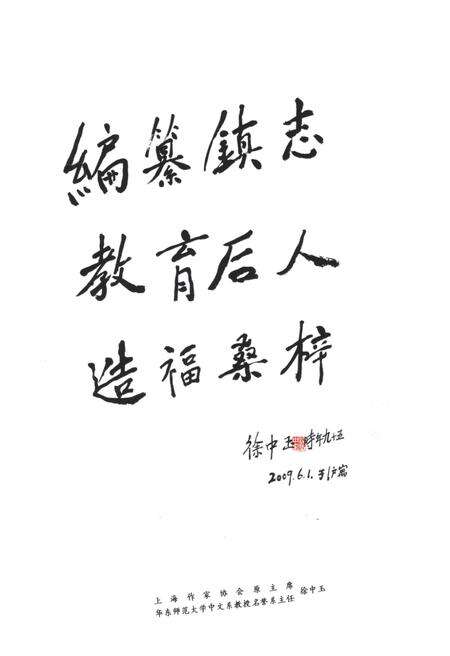 編纂鎮志
教育后人
造福桑梓
徐中玉 時年九十五
2009.6.1.于沪寓
上海作家协会原主席
华东师范大学中文系教授名誉系主任 徐中玉